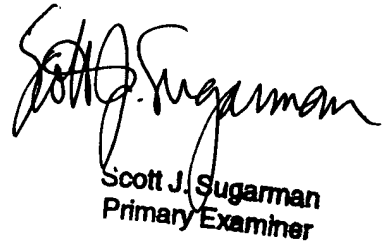 Scott J. Sugarman
Scott J. Sugarman
Primary Examiner